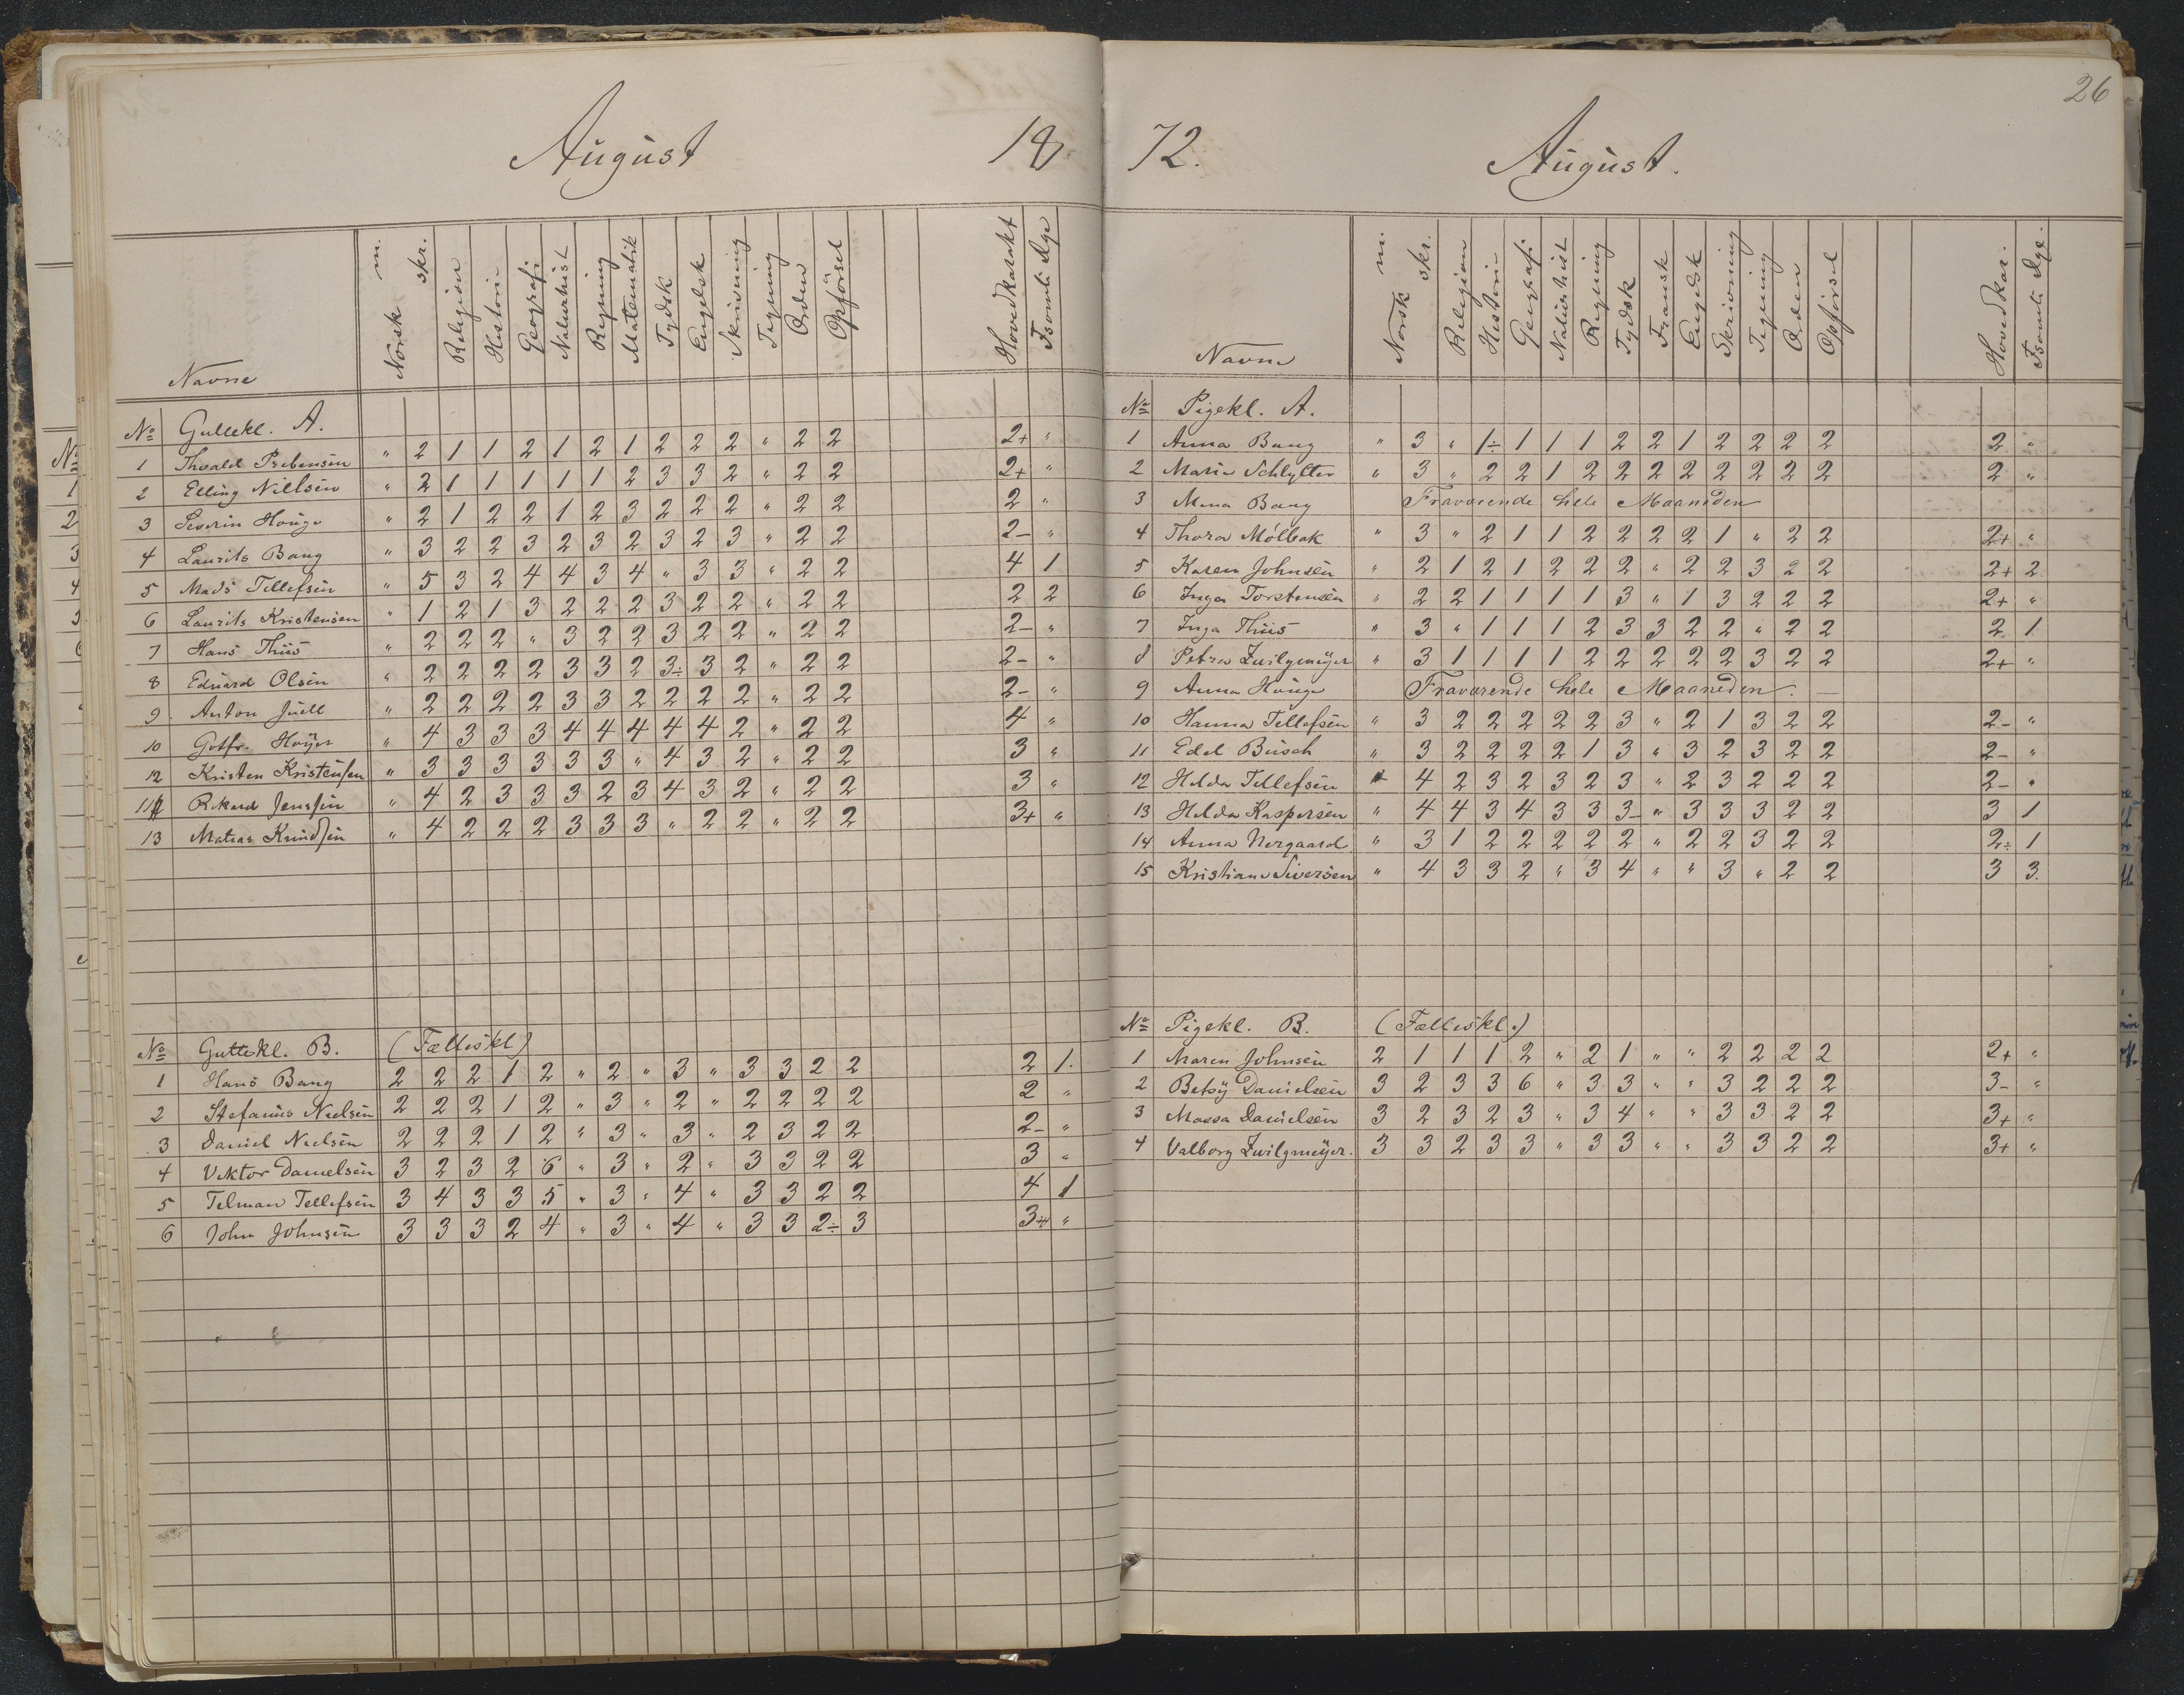 August 18
Navne Norsk m. skr. Religion Historie Geografi Naturhist Regning Matematik Tydsk Engelsk Skrivning Tegning Orden Opförsel Hovedkarakt Fsomls Dge
No Guttekl. A.
1 Thvald Prebensen " 2 1 1 2 1 2 1 2 2 2 " 2 2 2+ "
2 Elling Nielsen " 2 1 1 1 1 1 2 3 3 2 " 2 2 2+ "
3 Severin Houge " 2 1 2 2 1 2 3 2 2 2 " 2 2 2 "
4 Laurits Bang " 3 2 2 3 2 3 2 3 2 3 " 2 2 2- "
5 Mads Tellefsen " 5 3 2 4 4 3 4 " 3 3 " 2 2 4 1
6 Laurits Kristensen " 1 2 1 3 2 2 2 3 2 2 " 2 2 2 2
7 Hans Thiis " 2 2 2 " 3 2 2 3 2 2 " 2 2 2- "
8 Eduard Olsen " 2 2 2 2 3 3 2 3÷ 3 2 " 2 2 2- "
9 Anton Juell " 2 2 2 2 3 3 2 2 2 2 " 2 2 2- "
10 Gotfr. Høyer " 4 3 3 3 4 4 4 4 4 2 " 2 2 4 "
12 Kristen Kristensen " 3 3 3 3 3 3 " 4 3 2 " 2 2 3 "
11 Rikard Jenssen " 4 2 3 3 3 2 3 4 3 2 " 2 2 3 "
13 Matias Knudsen " 4 2 2 2 3 3 3 " 2 2 " 2 2 3+ "
No Guttekl. B. (Fælleskl)
1 Hans Bang 2 2 2 1 2 " 2 " 3 " 3 3 2 2 2 1.
2 Stefanus Nielsen 2 2 2 1 2 " 3 " 2 " 2 2 2 2 2 "
3 Daniel Nielsen 2 2 2 1 2 " 3 " 3 " 2 3 2 2 2- "
4 Viktor Danielsen 3 2 3 2 6 " 3 " 2 " 3 3 2 2 3 "
5 Telman Tellefsen 3 4 3 3 5 " 3 " 4 " 3 3 2 2 4 1
6 John Johnsen 3 3 3 2 4 " 3 " 4 " 3 3 2÷ 3 3+ "
26
72. August.
Navne Norsk m. skr. Religion Historie Geografi Naturhist Regning Tydsk Fransk Engelsk Skrivning Tegning Orden Opførsel Hovedkar. Fsomls Dge.
No Pigekl. A.
1 Anna Bang " 3 " 1÷ 1 1 1 2 2 1 2 2 2 2 2 "
2 Marie Schlytter " 3 " 2 2 1 2 2 2 2 2 2 2 2 2 "
3 Mina Bang Fraværende hele Maaneden
4 Thora Mølbak " 3 " 2 1 1 2 2 2 2 1 " 2 2 2+ "
5 Karen Johnsen " 2 1 2 1 2 2 2 " 2 2 3 2 2 2+ 2
6 Inga Torstensen " 2 2 1 1 1 1 3 " 1 3 2 2 2 2+ "
7 Inga Thiis " 3 " 1 1 1 2 3 3 2 2 " 2 2 2 1
8 Petra Zwilgmeyer " 3 1 1 1 1 2 2 2 2 2 3 2 2 2+ "
9 Anna Houge Fraværende hele Maaneden. —
10 Hanna Tellefsen " 3 2 2 2 2 2 3 " 2 1 3 2 2 2- "
11 Edel Busch " 3 2 2 2 2 1 3 " 3 2 3 2 2 2- "
12 Helda Tellefsen " 4 2 3 2 3 2 3 " 2 3 2 2 2 2- "
13 Helda Kaspersen " 4 4 3 4 3 3 3- " 3 3 3 2 2 3 1
14 Anna Nergaard " 3 1 2 2 2 2 2 " 2 2 3 2 2 2÷ 1
15 Kristiane Siversen " 4 3 3 2 " 3 4 " " 3 " 2 2 3 3.
No Pigekl. B. (Fælleskl.)
1 Maren Johnsen 2 1 1 1 2 " 2 1 " " 2 2 2 2 2+ "
2 Betsy Danielsen 3 2 3 3 6 " 3 3 " " 3 2 2 2 3- "
3 Massa Danielsen 3 2 3 2 3 " 3 4 " " 3 3 2 2 3+ "
4 Valborg Zwilgmeyer. 3 3 2 3 3 " 3 3 " " 3 3 2 2 3+ "